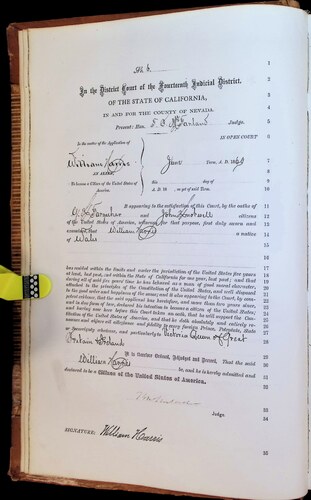 No 6
In the District Court of the Fourteenth Judicial District,
OF THE STATE OF CALIFORNIA,
IN AND FOR THE COUNTY OF NEVADA.
Present: Hon. T. B. McFarland Judge.
IN OPEN COURT
In the matter of the Application of
William Harris
AN ALIEN,
To become a Citizen of the United States of
America
June Term, A. D. 1869
day of
A. D. 18 , as yet of said Term.
It appearing to the satisfaction of this Court, by the oaths of
and John citizens
of the United States of America, referring for that purpose, first duly sworn and
examined, that William Harris a native
of Wales
has resided within the limits and under the jurisdiction of the United States five years
at least, last past, and within the State of California for one year, last past; and that
during all of said five years' time he has behaved as a man of good moral character,
attached to the principles of the Constitution of the United States, and well disposed
to the good order and happiness of the same; and it also appearing to the Court, by competent
proof, that the said applicant has heretofore, and more than two years since,
and in due form of law, declared his intention to become a citizen of the United States;
and having now here before this Court taken an oath, that he will support the Constitution
of the United States of America, and that he doth absolutely and entirely renounce
and abjure all allegiance and fidelity to every foreign Prince, Potentate, State
or Sovereignty whatever, and particularly to Victoria Queen of Great
Britain & Ireland
It is therefore Ordered, Adjudged and Decreed, That the said
William Harris be, and he is hereby admitted and
declared to be a Citizen of the United States of America.
Judge.
SIGNATURE: William Harris
1
2
3
4
5
6
7
8
9
10
11
12
13
14
15
16
17
18
19
20
21
22
23
24
25
26
27
28
29
30
31
32
33
34
35